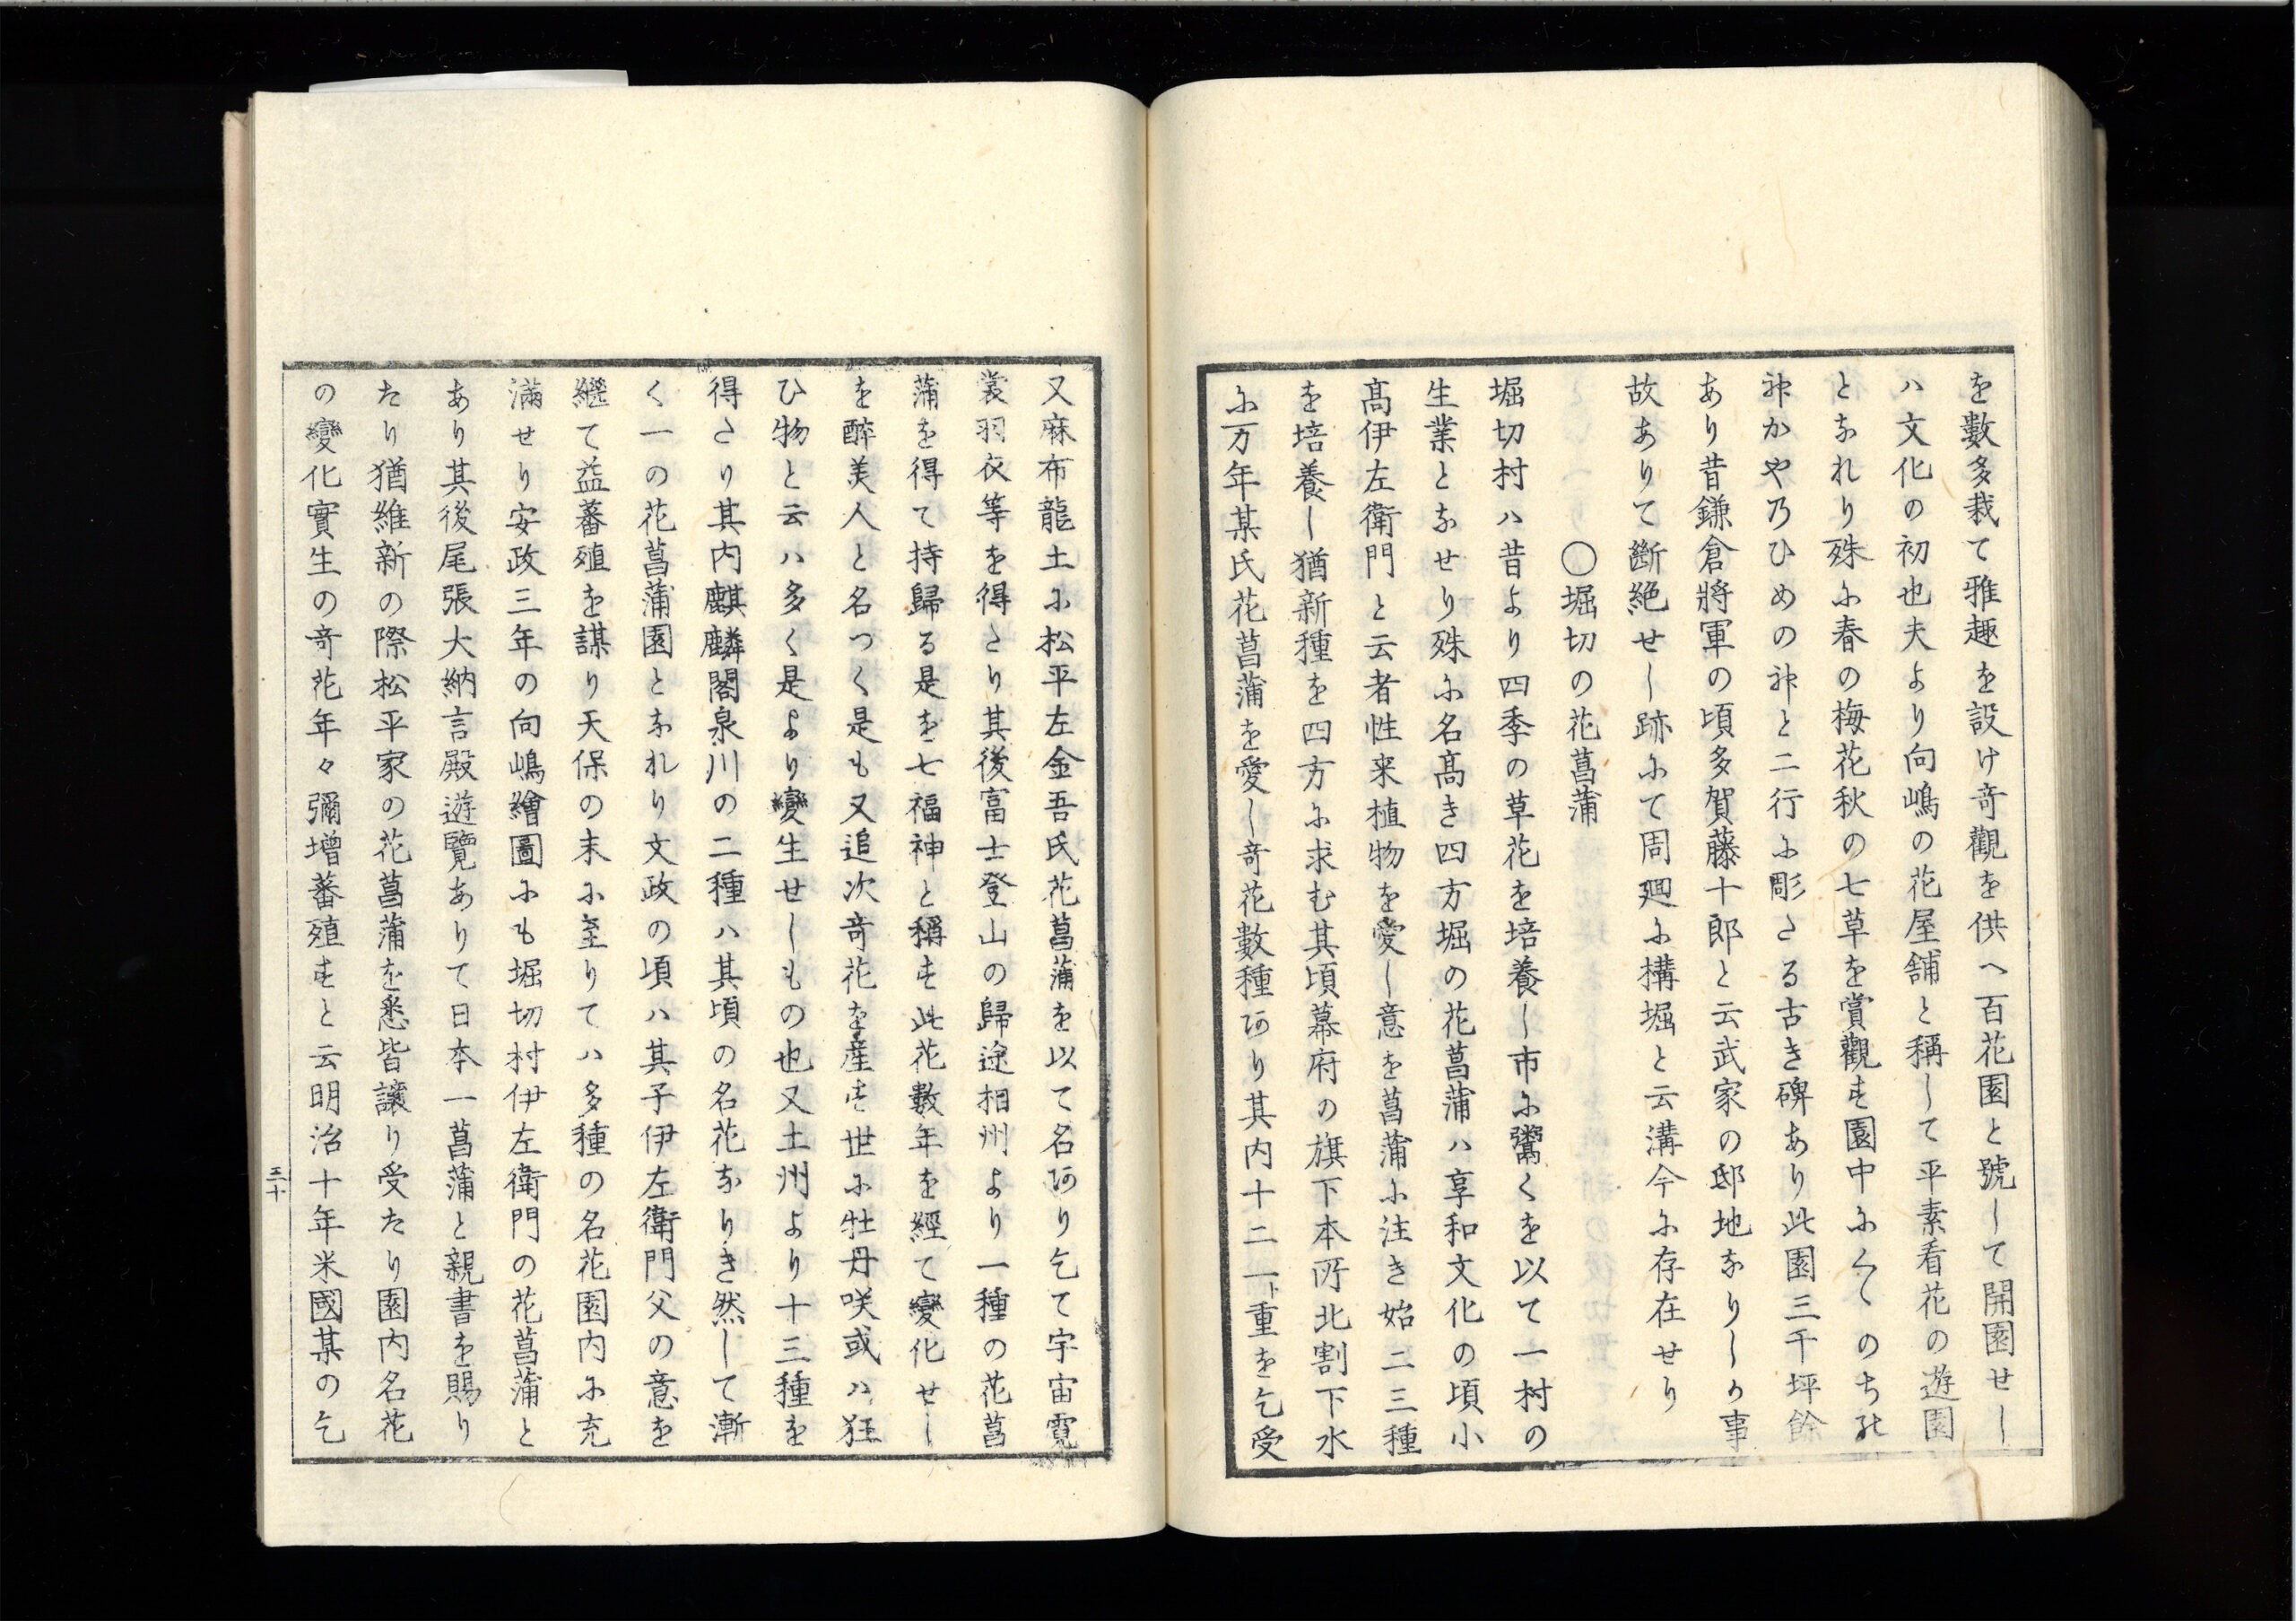 を數多栽て雅趣を設け竒觀を供へ百花園と號して開園せし
ハ文化の初也夫より向嶋の花屋舗と稱して平素看花の遊園
となれり殊に春の梅花秋の七草を賞觀す園中に〳〵のち
かや乃ひめの神と二行に彫たる古き碑あり此園三千坪餘
あり昔鎌倉將軍の頃多賀藤十郎と云武家の邸地なりしか事
故ありて斷絶せし跡にて周廻に構堀と云溝今に存在せり
〇堀切の花菖蒲
堀切村ハ昔より四季の草花を培養し市に鬻くを以て一村の
生業となせり殊に名髙き四方堀の花菖蒲ハ享和文化の頃小
髙伊左衛門と云者性来植物を愛し意を菖蒲に注き始二三種
を培養し猶新種を四方に求む其頃幕府の旗下本所北割下水
に万年某氏花菖蒲を愛し竒花數種あり其内十二一ト重を乞受
又麻布龍土に松平左金吾氏花菖蒲を以て名あり乞て宇宙霓
裳羽衣等を得たり其後富士登山の歸途相州より一種の花菖
蒲を得て持歸る是を七福神と稱す此花數年を經て變化せし
を醉美人と名つく是も又追次竒花を産す世に牡丹咲或ハ狂
ひ物と云ハ多く是より變生せしもの也又土州より十三種を
得たり其内麒麟閣泉川の二種ハ其頃の名花なりき然して漸
く一の花菖蒲園となれり文政の頃ハ其子伊左衛門父の意を
繼て益蕃殖を謀り天保の末に至りてハ多種の名花園内に充
滿せり安政三年の向嶋繪圖にも堀切村伊左衛門の花菖蒲と
あり其後尾張大納言殿遊覽ありて日本一菖蒲と親書を賜り
たり猶維新の際松平家の花菖蒲を悉皆讓り受たり園内名花
の變化實生の竒花年々彌增蕃殖すと云明治十年米國某の乞
三十